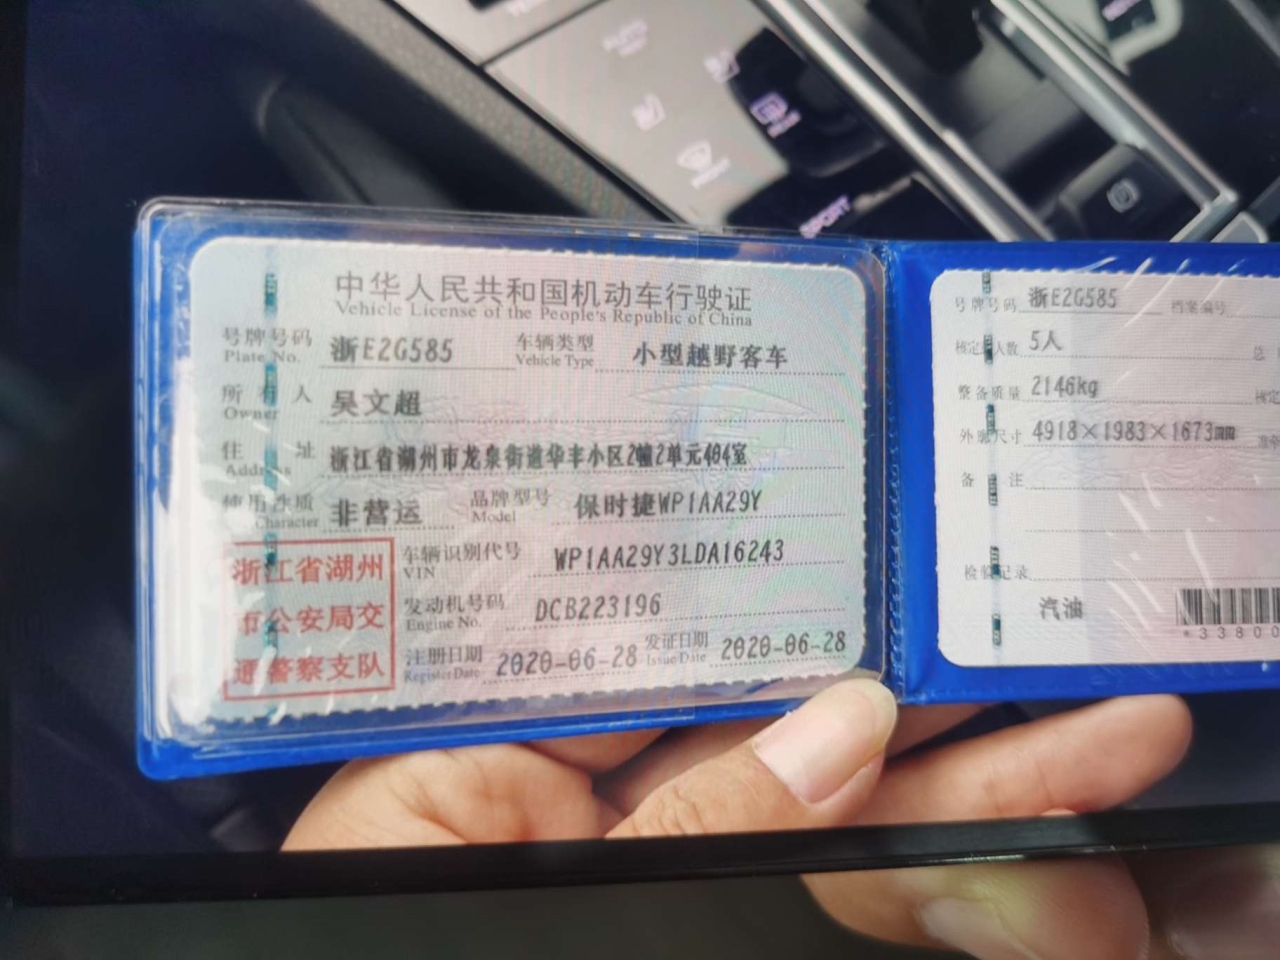 AUTO
SPORT
中华人民共和国机动车行驶证
Vehicle License of the People's Republic of China
号牌号码 浙E2G585 车辆类型 小型越野客车
Plate No. Vehicle Type
所有人 吴文超
Owner
住址 浙江省湖州市龙泉街道华丰小区2幢2单元404室
Address
使用性质 非营运 品牌型号 保时捷WP1AA29Y
Character Model
浙江省湖州
市公安局交
通警察支队
车辆识别代号 WP1AA29Y3LDA16243
VIN
发动机号码 DCB223196
Engine No.
注册日期 2020-06-28 发证日期 2020-06-28
Register Date Issue Date
号牌号码 浙E2G585 档案编号
核定人数 5人 总
整备质量 2146kg 核定
外廓尺寸 4918×1983×1673mm 准
备注
检验记录
汽油
*33800